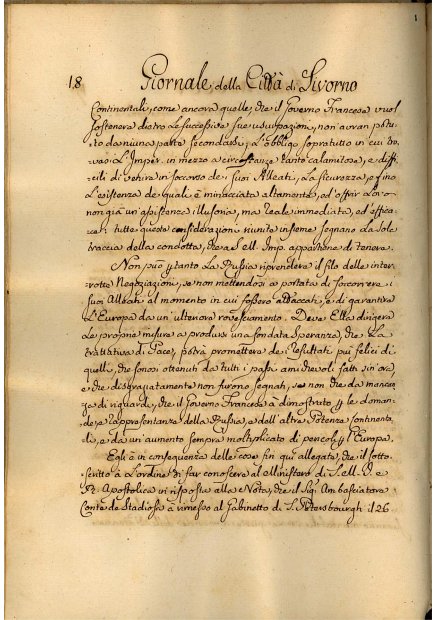 1
18 Giornale della Città di Livorno
Continentali, come ancora quelle, che il Governo Francese vuol
sostenere dietro le successive sue usurpazioni, non avran potu-
to da niuna parte secondarsi; L'obbligo sopratutto in cui tro-
vasi l'Imper. in mezzo a circostanze tanto calamitose, e diffi-
cili di venire in soccorso de' suoi Alleati, La sicurezza, e fino
L'esistenza de quali è minacciata altamente, ed offrir Loro
non già un'assistenza illusoria, ma reale immediata, ed effica-
ce; tutte queste considerazioni riunite insieme segnano la sole
traccia della condotta, che a S. M. Imp. appartiene di tenere.
Non può ptanto La Russia riprendere il filo delle inter-
rotte Negoziazioni, se non mettendosi a portata di soccorrere i
suoi Alleati al momento in cui fossero attaccati, e di garantire
L'Europa da un'ulteriore rovesciamento. Deve Ella dirigere
Le proprie misure a produrre una fondata Speranza, che La
trattativa di Pace, potrà promettere de' Resultati più felici di
quelli, che sonosi ottenuti da tutti i passi amichevoli fatti sin'ora,
e che disgraziatamente non furono segnati, se non che da mancan-
za di riguardi, che il Governo Francese à dimostrato p le doman-
de, e rappresentanze della Russia, e dell'altre Potenze continenta-
li, e da un'aumento sempre moltiplicato di pericoli p l'Europa.
Egli è in conseguenza delle cose fin quì allegate, che il sotto-
scritto à L'ordine di far conoscere al Ministero di S. M. I. e
R. Apostolica in risposta alla Nota, che il Sig. Ambasciatore
Conte de Stadion à rimesso al Gabinetto di S. Petersbourgh il 26